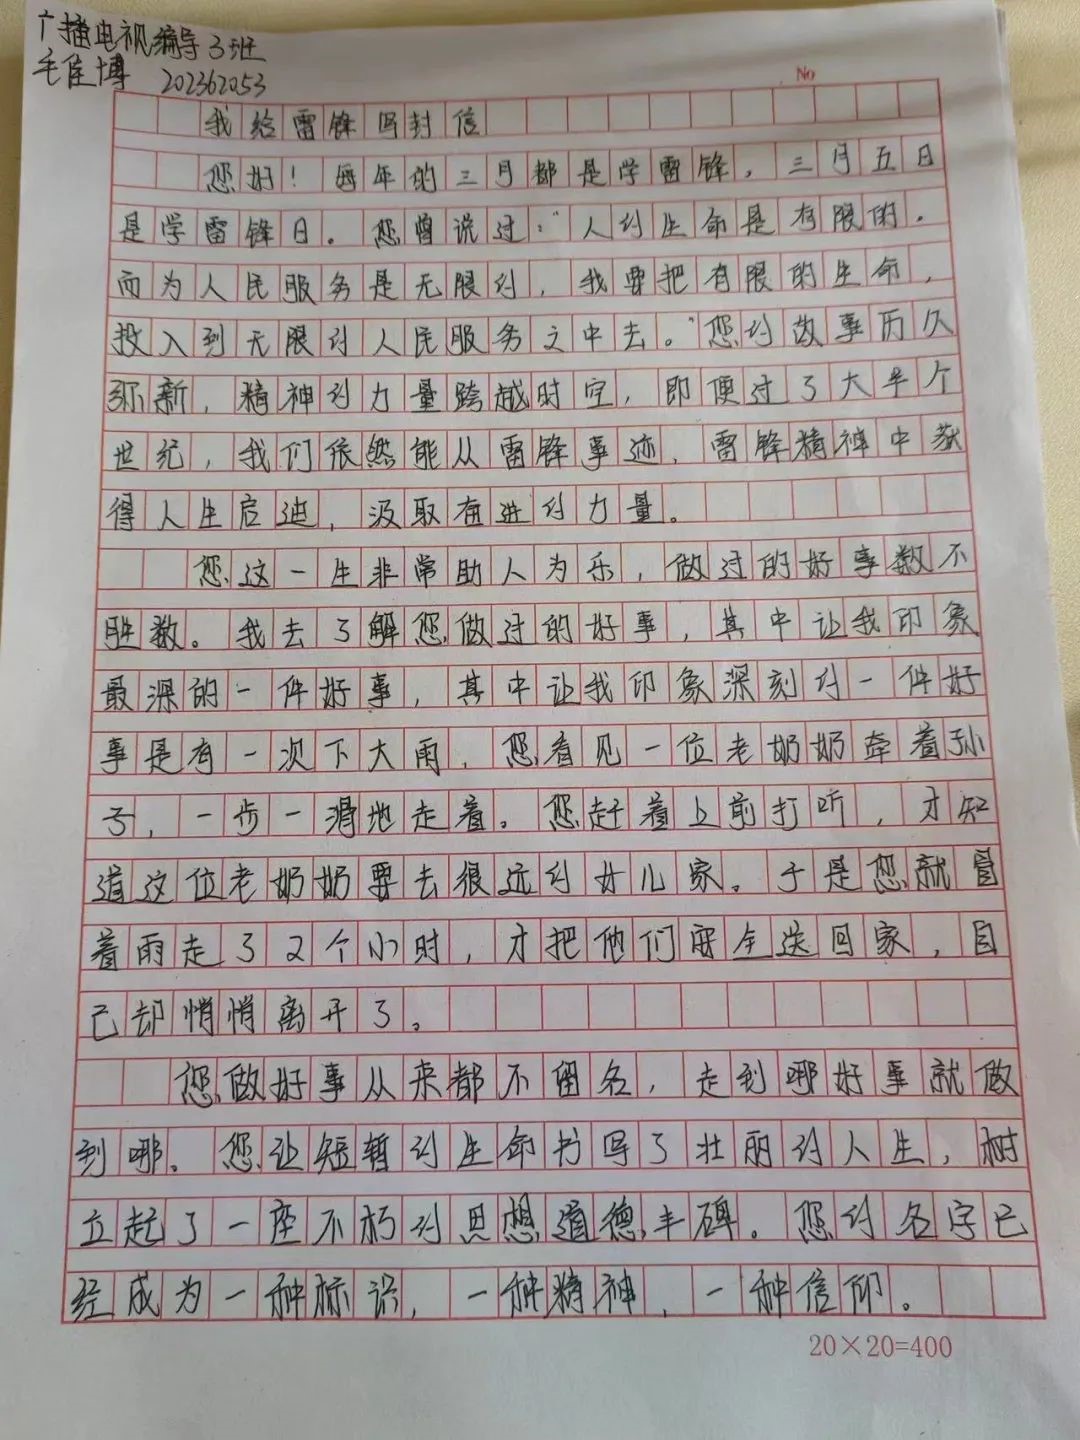 广播电视编导3班
毛佳博 202362053
No
我给雷锋写封信
您好！每年的三月都是学雷锋，三月五日
是学雷锋日。您曾说过："人的生命是有限的.
而为人民服务是无限的，我要把有限的生命，
投入到无限的人民服务之中去。"您的故事历久
弥新，精神的力量跨越时空，即便过了大半个
世纪，我们依然能从雷锋事迹、雷锋精神中获
得人生启迪，汲取奋进的力量。
您这一生非常助人为乐，做过的好事数不
胜数。我去了解您做过的好事，其中让我印象
最深的一件好事，其中让我印象深刻的一件好
事是有一次下大雨，您看见一位老奶奶牵着孙
子，一步一滑地走着。您赶着上前打听，才知
道这位老奶奶要去很远的女儿家。于是您就冒
着雨走了2个小时，才把他们安全送回家，自
己却悄悄离开了。
您做好事从来都不留名，走到哪好事就做
到哪。您让短暂的生命书写了壮丽的人生，树
立起了一座不朽的思想道德丰碑。您的名字已
经成为一种标识，一种精神，一种信仰。
20×20=400